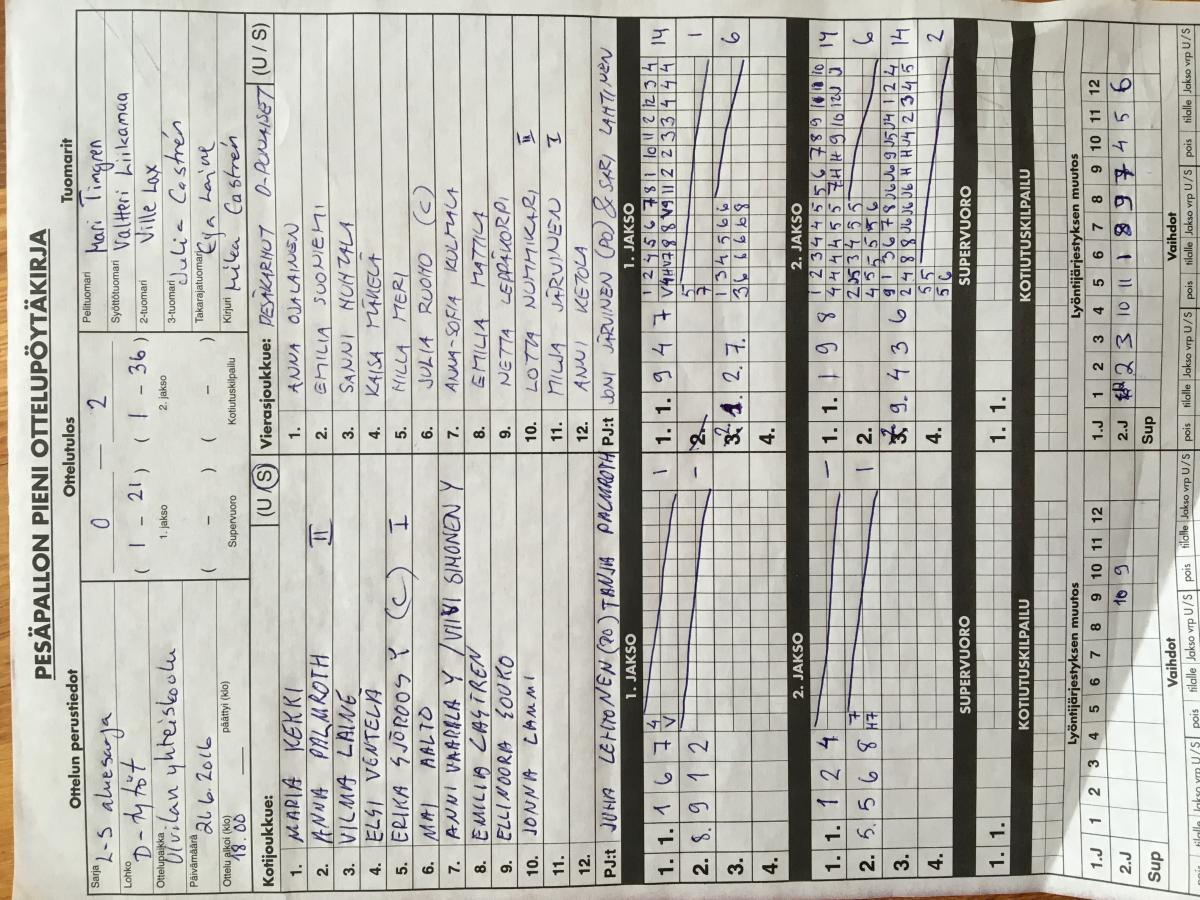 PESÄPALLON PIENI OTTELUPÖYTÄKIRJA
Ottelun perustiedot
Sarja L-S aluesarja
Lohko D-tytöt
Ottelupaikka Ulvilan yhteiskoulu
Päivämäärä 21.6.2016
Ottelu alkoi (klo) 18.00 päättyi (klo)
Ottelutulos
0 — 2
( 1 - 21 ) ( 1 - 36 )
1. jakso 2. jakso
( - ) ( - )
Supervuoro Kotiutuskilpailu
Tuomarit
Pelituomari Mari Tingren
Syöttötuomari Valtteri Liikamaa
2-tuomari Ville Lax
3-tuomari Julia Castrén
Takarajatuomari Eija Laine
Kirjuri Mika Castrén
Kotijoukkue: (U / S)
1. MARIA KEKKI
2. ANNA PALMROTH II
3. VILMA LAINE
4. ELSI VENTELÄ
5. ERIKA SJÖROOS Y (C) I
6. MAI AALTO
7. ANNI VAARALA Y / VIIVI SIMONEN Y
8. EMILIA CASTREN
9. ELLINOORA SOUKO
10. JONNA LAMMI
11.
12.
PJ:t JUHA LEHTONEN (PO) TANJA PALMROTH
Vierasjoukkue: PESÄKARHUT D-PUNAISET (U / S)
1. ANNA OJALAINEN
2. EMILIA SUONIEMI
3. SANNI HUHTALA
4. KAISA MÄKELÄ
5. MILLA MERI
6. JULIA RUOHO (C)
7. ANNA-SOFIA KULMALA
8. EMILIA MATTILA
9. NETTA LEPÄKORPI
10. LOTTA NUMMIKARI II
11. MILJA JÄRVINEN I
12. ANNI KETOLA
PJ:t JONI JÄRVINEN (PO) & SARI LAHTINEN
1. JAKSO
1. 1. 1 6 7 4 1
V
2. 8. 9 1 2 -
3.
4.
1. JAKSO
1. 1. 9 4 7 1 2 4 5 6 7 8 1 10 11 2 12 3 4 14
2. 5 1
7
3. 2. 7. 1 3 4 5 6 6 6
3 6 6 6 6 8
4.
2. JAKSO
1. 1. 1 2 4 -
2. 5. 5 6 8 7 1
H7
3.
4.
2. JAKSO
1. 1. 1 9 8 1 2 3 4 4 4 5 5 6 7 8 9 10 10 14
2. 6
4 5 5 5 5 6
3. 9. 4 3 6 14
4. 5 5 2
5 6
SUPERVUORO
1. 1.
SUPERVUORO
1. 1.
KOTIUTUSKILPAILU
KOTIUTUSKILPAILU
Lyöntijärjestyksen muutos
1.J 1 2 3 4 5 6 7 8 9 10 11 12
2.J 10 9
Sup
Lyöntijärjestyksen muutos
1.J 1 2 3 4 5 6 7 8 9 10 11 12
2.J 12 2 3 10 11 1 8 9 7 4 5 6
Sup
Vaihdot
pois tilalle Jakso vrp U/S pois tilalle Jakso vrp U/S
Vaihdot
pois tilalle Jakso vrp U/S pois tilalle Jakso vrp U/S